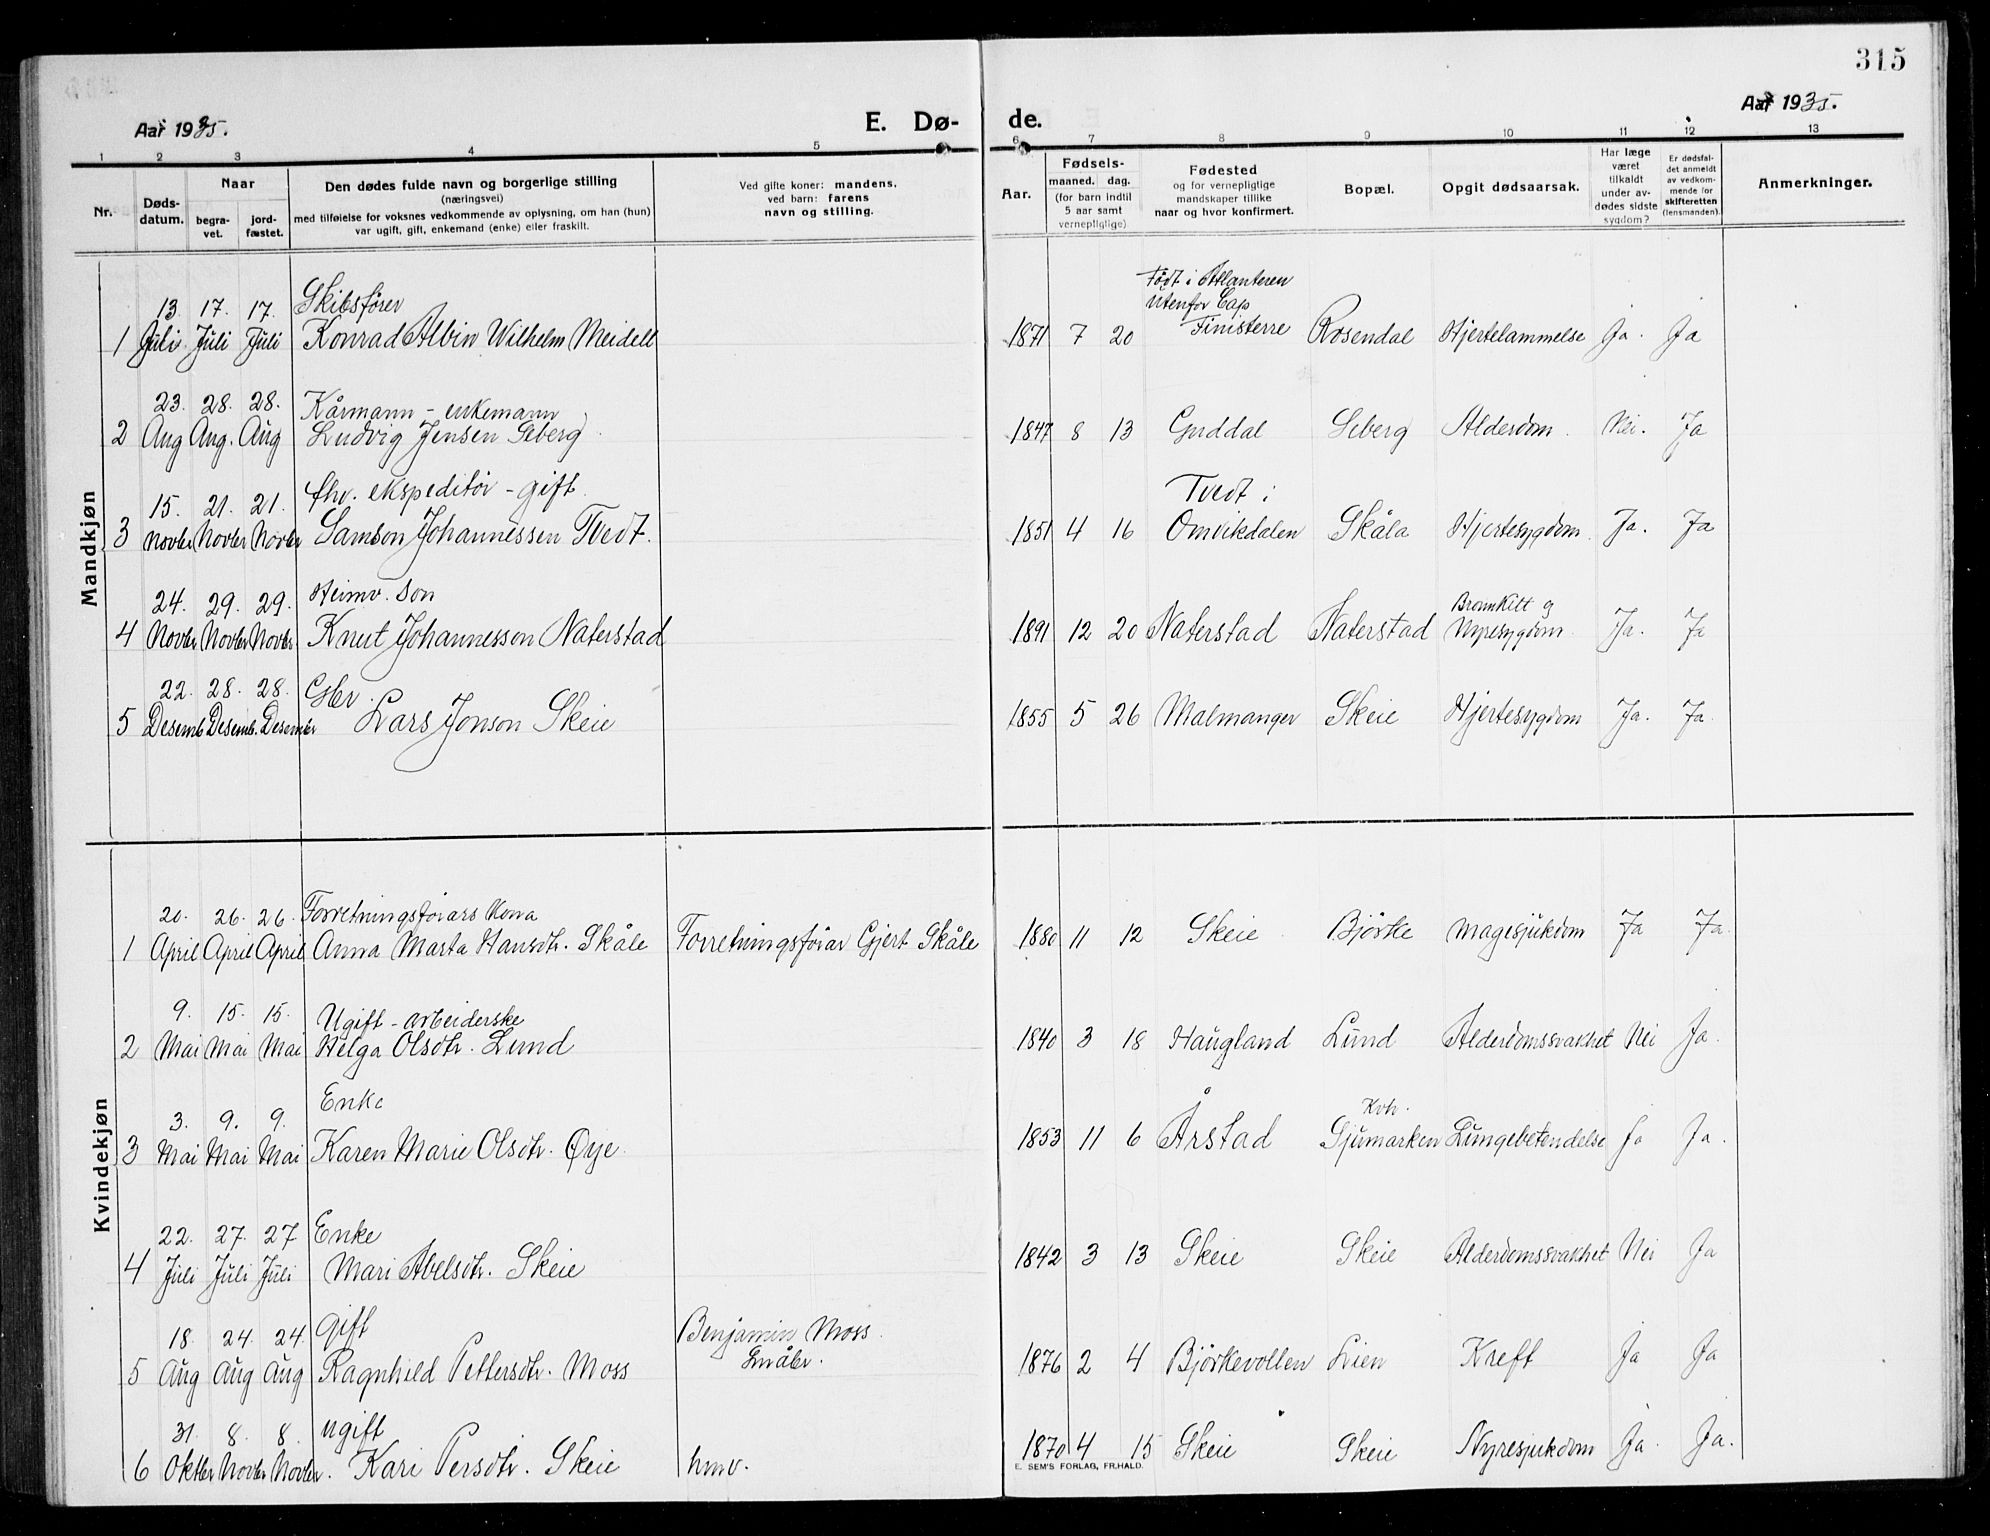 315
Aar 1935.
E. Dø-
de.
Aar 1935.
1 2 3 4 5 6 7 8 9 10 11 12 13
Nr.
Dødsdatum.
Naar
begravet.
jordfæstet.
Den dødes fulde navn og borgerlige stilling
(næringsvei)
med tilføielse for voksnes vedkommende av oplysning, om han (hun)
var ugift, gift, enkemand (enke) eller fraskilt.
Ved gifte koner: mandens,
ved barn: farens
navn og stilling.
Aar.
Fødsels-
maaned. dag.
(for barn indtil
5 aar samt
vernepligtige)
Fødested
og for vernepligtige
mandskaper tillike
naar og hvor konfirmert.
Bopæl.
Opgit dødsaarsak.
Har læge
været
tilkaldt
under av-
dødes sidste
sygdom?
Er dødsfal-
det anmeldt
av vedkom-
mende for
skifteretten
(lensmanden).
Anmerkninger.
Mandkjøn
13. 17. 17. Skibsfører Født i Atlanteren
utenfor Cap
1 Juli Juli Juli Konrad Albin Wilhelm Meidell 1871 7 20 Finisterre Rosendal Hjertelammelse Ja. Ja
23. 28. 28. Kårmann - enkemann
2 Aug Aug. Aug Ludvig Jensen Seberg 1847 8 13 Guddal Seberg Alderdom. Nei. Ja
15. 21. 21. fhv. ekspeditør - gift. Tvedt i
3 Novbr Novbr Novbr Samson Johannessen Tvedt. 1851 4 16 Omvikdalen Skåla Hjertesygdom. Ja. Ja
24. 29. 29. Heimv. son Bronkitt og
4 Novbr Novbr Novbr. Knut Johannesson Naterstad 1891 12 20 Naterstad Naterstad Nyresygdom. Ja. Ja
22. 28. 28. Gbr.
5 Desemb Desemb. Desember Lars Jonson Skeie 1855 5 26 Malmanger Skeie Hjertesygdom Ja. Ja.
Kvindekjøn
20. 26. 26. Forretningsførars kona
1 April April April Anna Marta Hansdtr. Skåle Forretningsførar Gjert Skåle 1880 11 12 Skeie Bjørke Magesjukdom Ja Ja.
9. 15. 15. Ugift - arbeiderske
2 Mai Mai Mai Helga Olsdtr. Lund 1840 3 18 Haugland Lund Alderdomssvakhet Nei Ja.
3. 9. 9. Enke Kvh.
3 Mai Mai Mai Karen Marie Olsdtr. Øye. 1853 11 6 Årstad Gjumarken Lungebetendelse Ja Ja.
22. 27. 27 Enke
4 Juli Juli Juli Mari Abelsdtr. Skeie 1842 3 13 Skeie Skeie Alderdomssvakhet Nei Ja
18. 24. 24. Gift Benjamin Moss.
Småbr.
5 Aug Aug Aug Ragnhild Pettersdtr. Moss 1876 2 4 Bjørkevollen Lien Kreft Ja Ja
31. 8. 8. ugift
6 Oktbr Novbr Novbr. Kari Persdtr. Skeie hmv. 1870 4 15 Skeie Skeie Nyresjukdom Ja. Ja.
E. SEM'S FORLAG, FR.HALD.